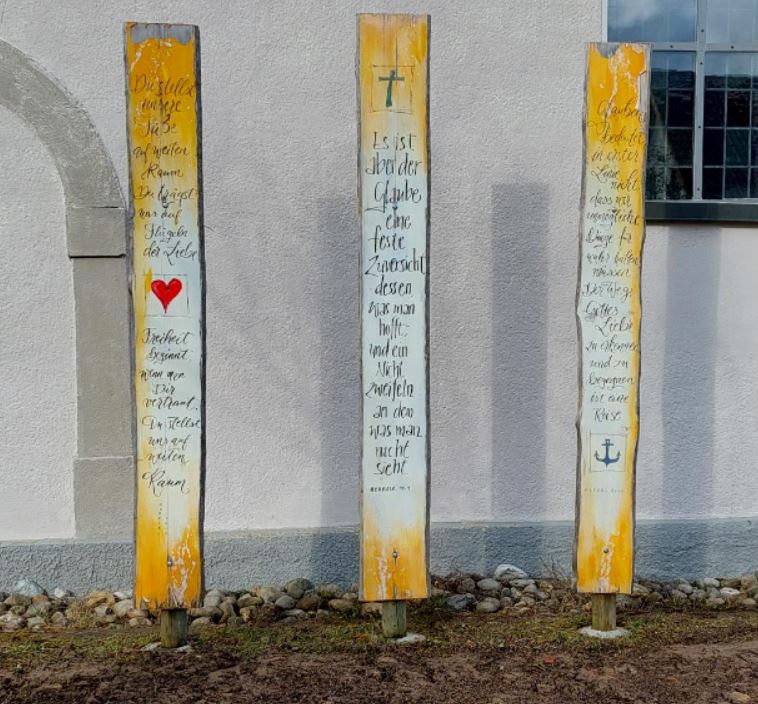 Du stellst
unsere
Füße
auf weiten
Raum
Du trägst
uns auf
Flügeln
der Liebe
Freiheit
beginnt
wenn man
Dir
vertraut.
Du stellst
uns auf
weiten
Raum
Es ist
aber der
Glaube
eine
feste
Zuversicht
dessen
was man
hofft,
und ein
Nicht
zweifeln
an dem
was man
nicht
sieht
HEBRÄER 11.1
Glauben
bedeutet
in erster
Linie nicht
dass wir
unmögliche
Dinge für
wahr halten
müssen
Der Weg
Gottes
Liebe
zu erkennen
und zu
begegnen
ist eine
Reise